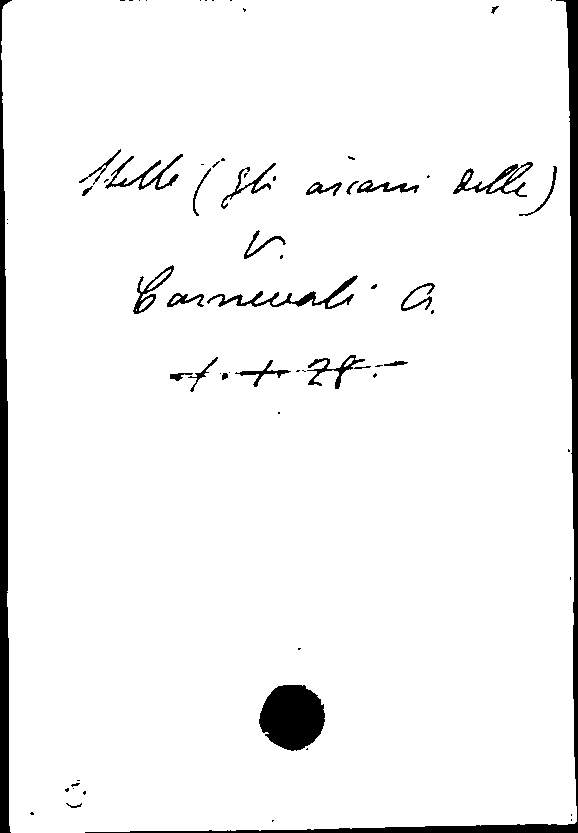 Stelle (gli arcani delle)
V.
Carnevali G.